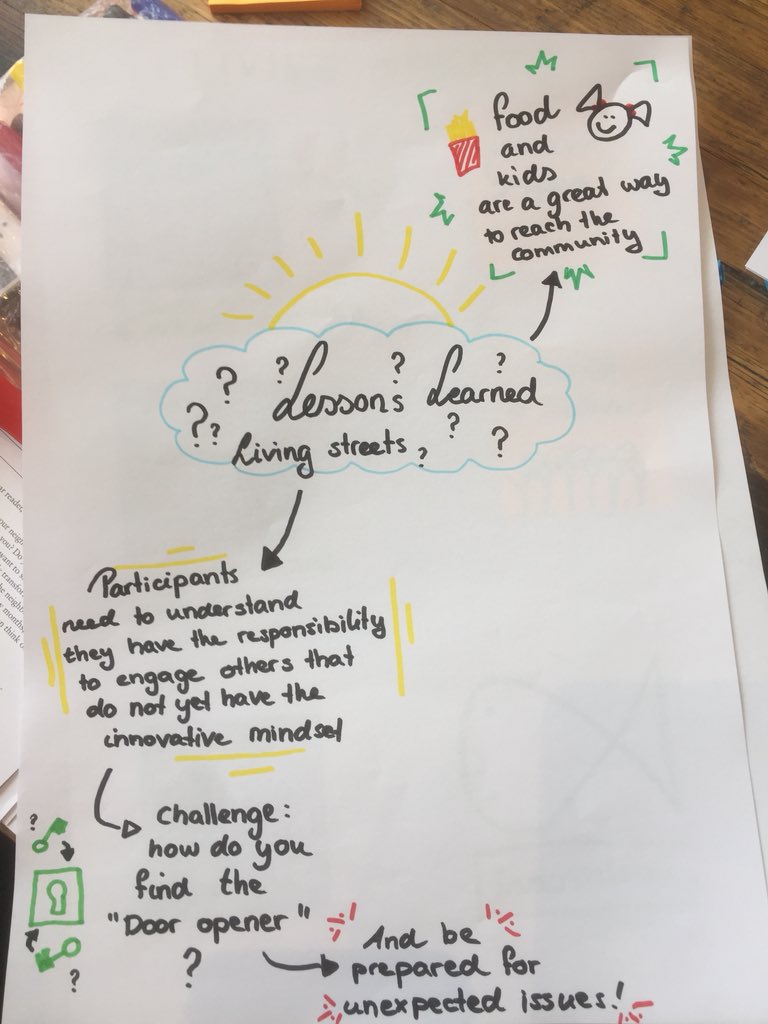 food
and
kids
are a great way
to reach the
community
? ? Lessons ? Learned ?
?? Living streets ? ? ?
Participants
need to understand
they have the responsibility
to engage others that
do not yet have the
innovative mindset
Challenge:
how do you
find the
"Door opener"
?
?
?
And be
prepared for
unexpected issues!